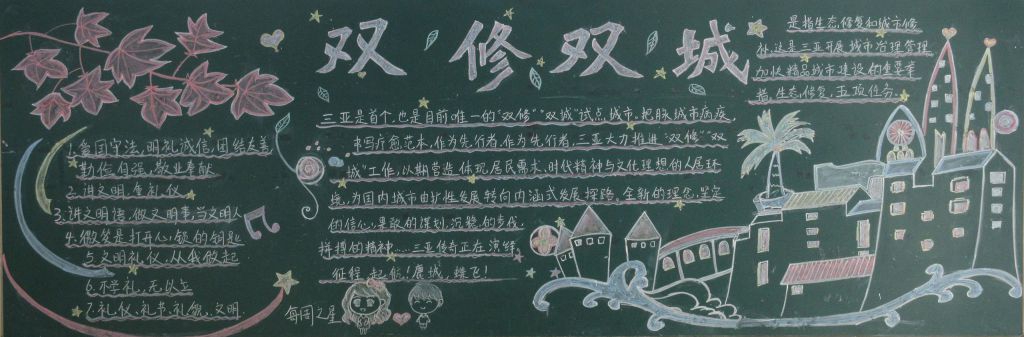 双修双城
1.爱国守法,明礼诚信,团结友善
勤俭自强,敬业奉献
2.讲文明,重礼仪
3.讲文明语,做文明事,当文明人
4.微笑是打开心锁的钥匙
与文明礼仪,从我做起
6.不学礼,无以立
7.礼仪、礼节、礼貌、文明.
三亚是首个,也是目前唯一的“双修”“双城”试点城市.把脉城市病疫,
书写疗愈范本,作为先行者,作为先行者,三亚大力推进“双修”“双
城”工作,以期营造体现居民需求、时代精神与文化理想的人居环
境,为国内城市由扩张发展转向内涵式发展探路.全新的理念,坚定
的信心,果敢的谋划,沉稳的步伐
拼搏的精神……三亚传奇正在演绎,
征程起航!鹿城,雄飞!
每周之星
是指生态修复和城市修
补,这是三亚开展城市治理管理
加快精品城市建设的重要举
措,生态修复,五项任务.